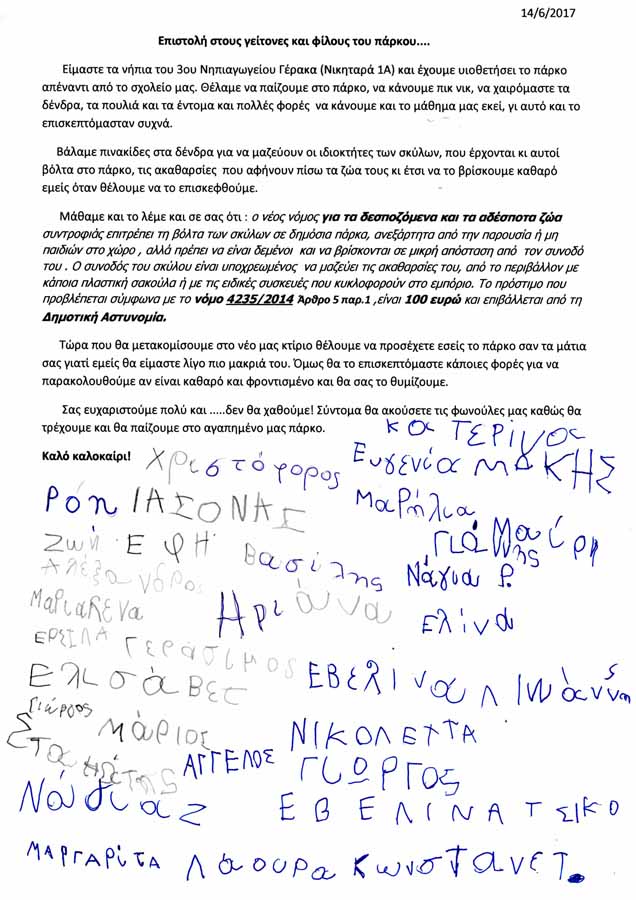 14/6/2017
Επιστολή στους γείτονες και φίλους του πάρκου....
Είμαστε τα νήπια του 3ου Νηπιαγωγείου Γέρακα (Νικηταρά 1Α) και έχουμε υιοθετήσει το πάρκο
απέναντι από το σχολείο μας. Θέλαμε να παίζουμε στο πάρκο, να κάνουμε πικ νικ, να χαιρόμαστε τα
δένδρα, τα πουλιά και τα έντομα και πολλές φορές να κάνουμε και το μάθημα μας εκεί, γι αυτό και το
επισκεπτόμασταν συχνά.
Βάλαμε πινακίδες στα δένδρα για να μαζεύουν οι ιδιοκτήτες των σκύλων, που έρχονται κι αυτοί
βόλτα στο πάρκο, τις ακαθαρσίες που αφήνουν πίσω τα ζώα τους κι έτσι να το βρίσκουμε καθαρό
εμείς όταν θέλουμε να το επισκεφθούμε.
Μάθαμε και το λέμε και σε σας ότι : ο νέος νόμος για τα δεσποζόμενα και τα αδέσποτα ζώα
συντροφιάς επιτρέπει τη βόλτα των σκύλων σε δημόσια πάρκα, ανεξάρτητα από την παρουσία ή μη
παιδιών στο χώρο , αλλά πρέπει να είναι δεμένοι και να βρίσκονται σε μικρή απόσταση από τον συνοδό
του . Ο συνοδός του σκύλου είναι υποχρεωμένος να μαζεύει τις ακαθαρσίες του, από το περιβάλλον με
κάποια πλαστική σακούλα ή με τις ειδικές συσκευές που κυκλοφορούν στο εμπόριο. Το πρόστιμο που
προβλέπεται σύμφωνα με το νόμο 4235/2014 Άρθρο 5 παρ.1 ,είναι 100 ευρώ και επιβάλλεται από τη
Δημοτική Αστυνομία.
Τώρα που θα μετακομίσουμε στο νέο μας κτίριο θέλουμε να προσέχετε εσείς το πάρκο σαν τα μάτια
σας γιατί εμείς θα είμαστε λίγο πιο μακριά του. Όμως θα το επισκεπτόμαστε κάποιες φορές για να
παρακολουθούμε αν είναι καθαρό και φροντισμένο και θα σας το θυμίζουμε.
Σας ευχαριστούμε πολύ και .....δεν θα χαθούμε! Σύντομα θα ακούσετε τις φωνούλες μας καθώς θα
τρέχουμε και θα παίζουμε στο αγαπημένο μας πάρκο.
Καλό καλοκαίρι!
Χριστόφορος
Ευγενία ΜΑΚΗΣ
Ρόη ΙΑΣΟΝΑΣ Μαρήλια
Ζωή ΕΦΗ Βασίλης
Νάγια Ρ.
Αλεξανδρος
Μαριαλενα Αριάνα Ελίνα
ΕΡΣΙΛΑ Γεράσιμος
Ελισάβετ ΕΒΕΛΙΝΑ
Γιώργος
Μάριος ΝΙΚΟΛΕΤΤΑ
ΑΓΓΕΛΟΣ ΓΙΩΡΓΟΣ
Νάθια Ζ ΕΒΕΛΙΝΑ ΤΣΙΚΟ
ΜΑΡΓΑΡΙΤΑ Λάουρα Κωνσταντ.